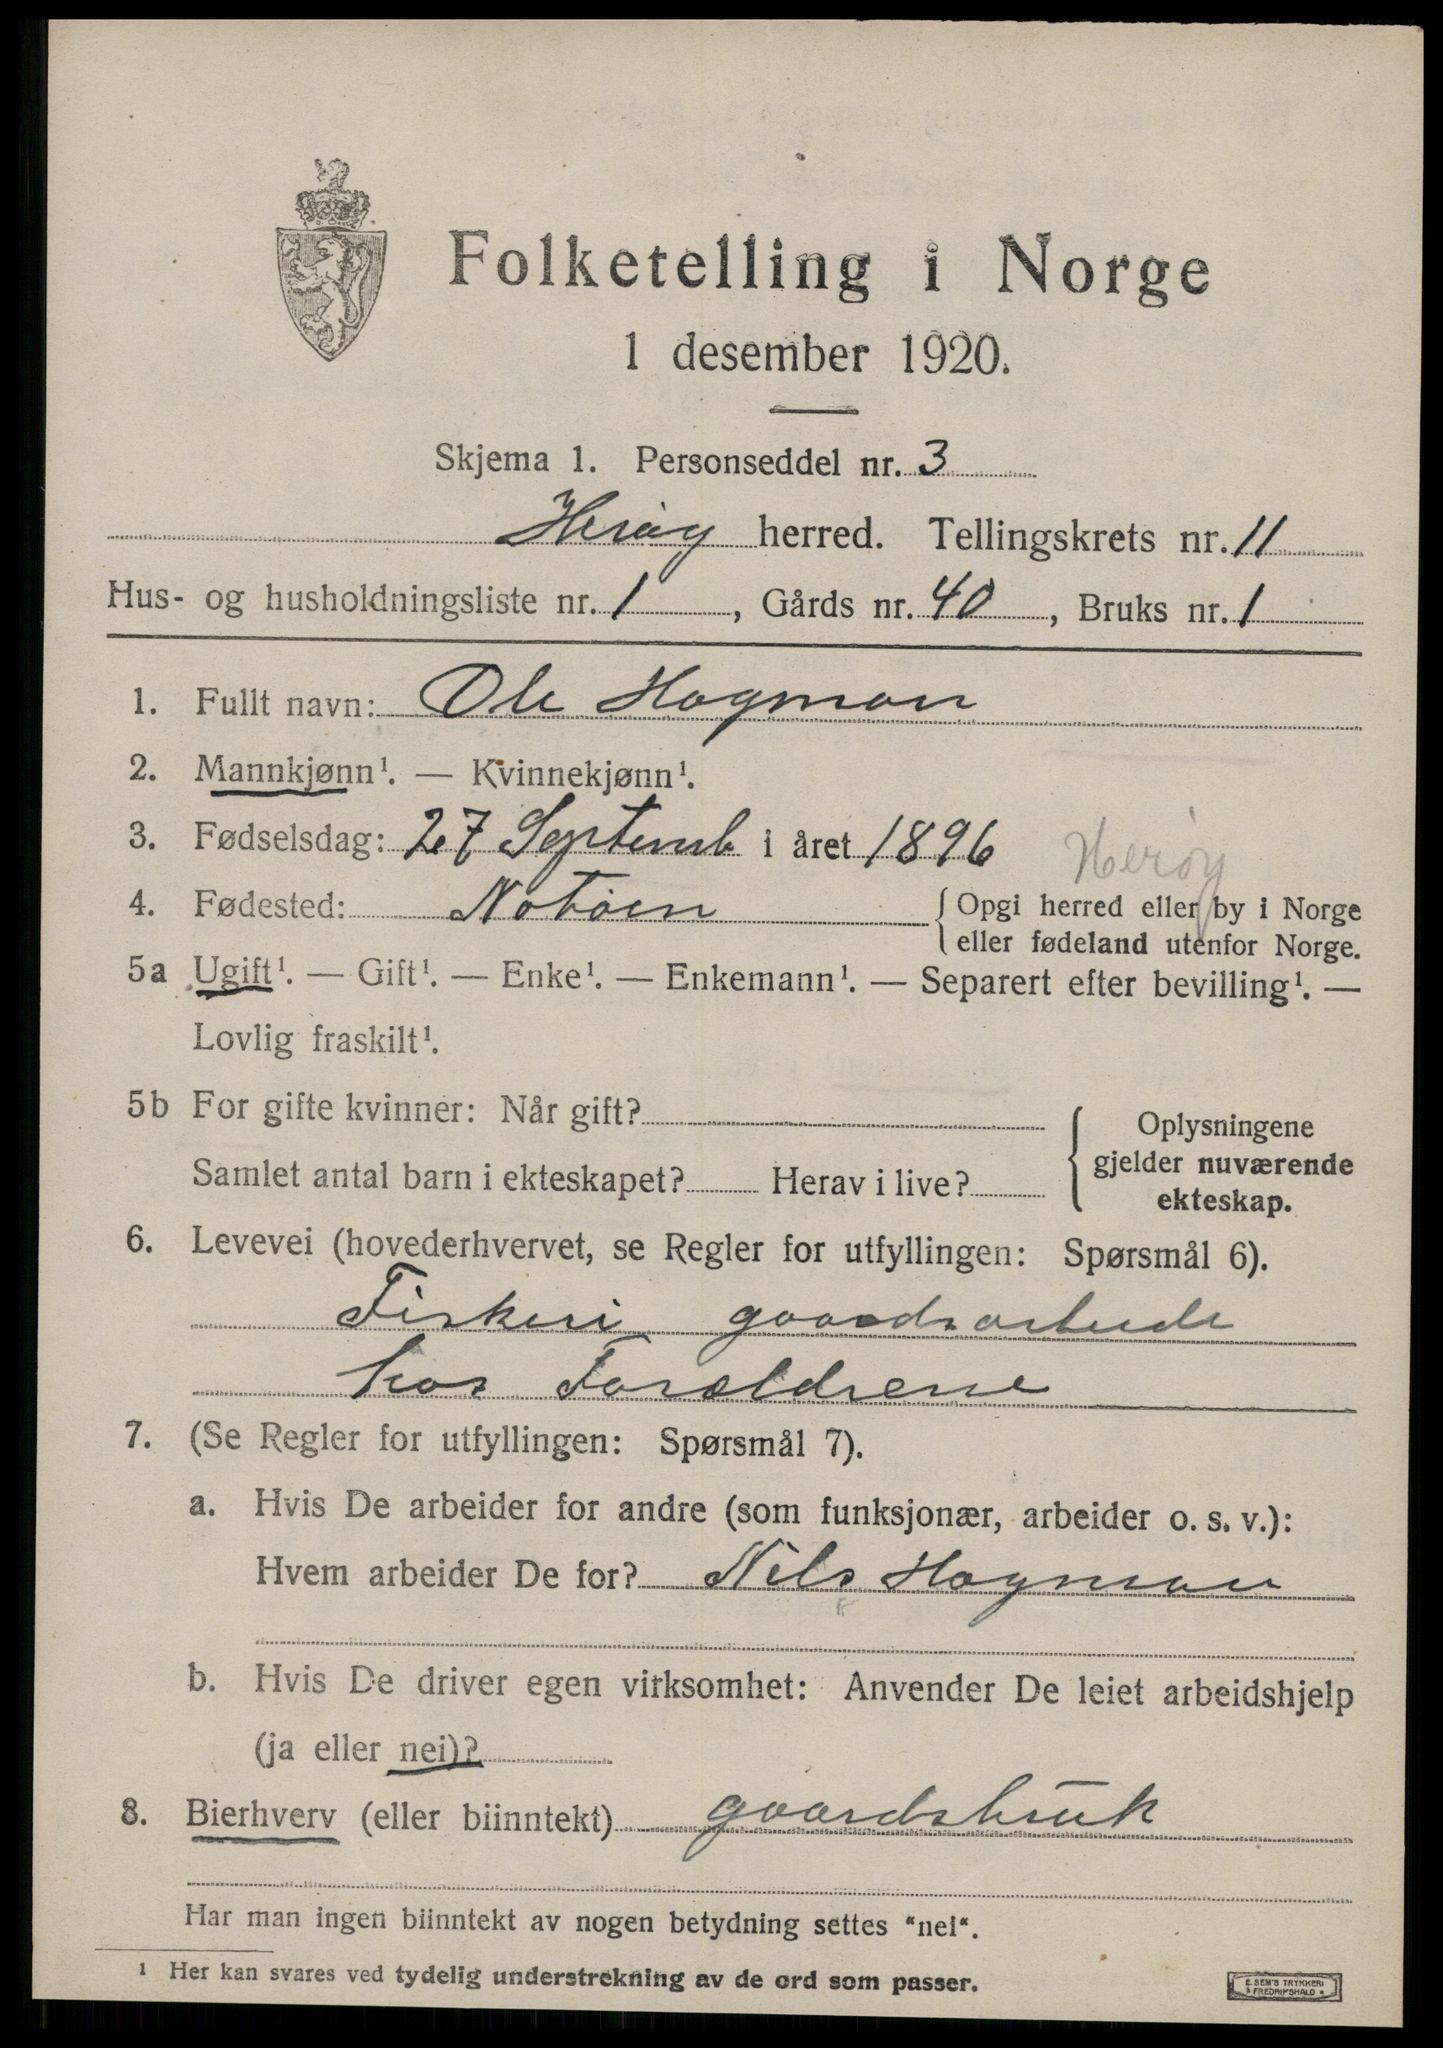 Folketelling i Norge
1 desember 1920.
Skjema 1. Personseddel nr. 3
Herøy herred. Tellingskrets nr. 11
Hus- og husholdningsliste nr. 1, Gårds nr. 40, Bruks nr. 1
1. Fullt navn: Ole Hagman
2. Mannkjønn¹. — Kvinnekjønn¹.
3. Fødselsdag: 27 Septemb i året 1896
Herøy
4. Fødested: Notøen { Opgi herred eller by i Norge
eller fødeland utenfor Norge.
5a Ugift¹. — Gift¹. — Enke¹. — Enkemann¹. — Separert efter bevilling¹. —
Lovlig fraskilt¹.
5b For gifte kvinner: Når gift?
Samlet antal barn i ekteskapet? Herav i live?
{ Oplysningene
gjelder nuværende
ekteskap.
6. Levevei (hovederhvervet, se Regler for utfyllingen: Spørsmål 6).
Fiskeri gaardsarbeide
hos Forældrene
7. (Se Regler for utfyllingen: Spørsmål 7).
a. Hvis De arbeider for andre (som funksjonær, arbeider o. s. v.):
Hvem arbeider De for? Nils Hagman
b. Hvis De driver egen virksomhet: Anvender De leiet arbeidshjelp
(ja eller nei)?
8. Bierhverv (eller biinntekt) gaardsbruk
Har man ingen biinntekt av nogen betydning settes "nei".
¹ Her kan svares ved tydelig understrekning av de ord som passer.
E. SEM'S TRYKKERI
FREDRIKSHALD